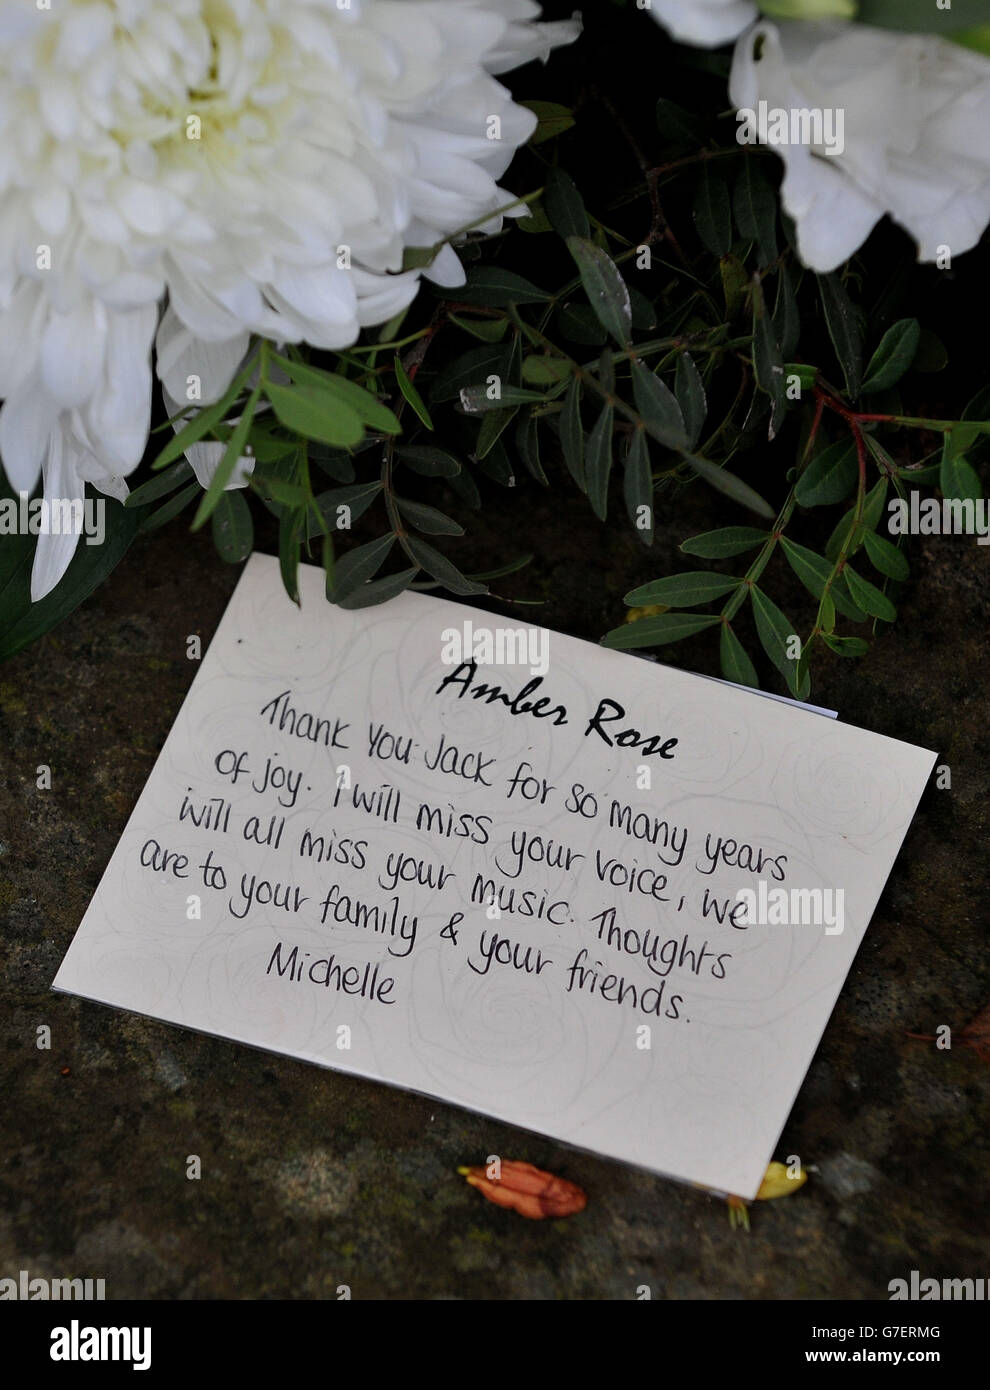 Amber Rose
Thank You Jack for so many years
of joy. I will miss your voice, we
will all miss your music. Thoughts
are to your family & your friends.
Michelle
a
alamy
a
alamy
a
a
a
a
a
a
a
a
alamy
a
alamy
a
a
alamy
a
a
a
a
alamy
a
alamy
alamy
Image ID: G7ERMG
www.alamy.com